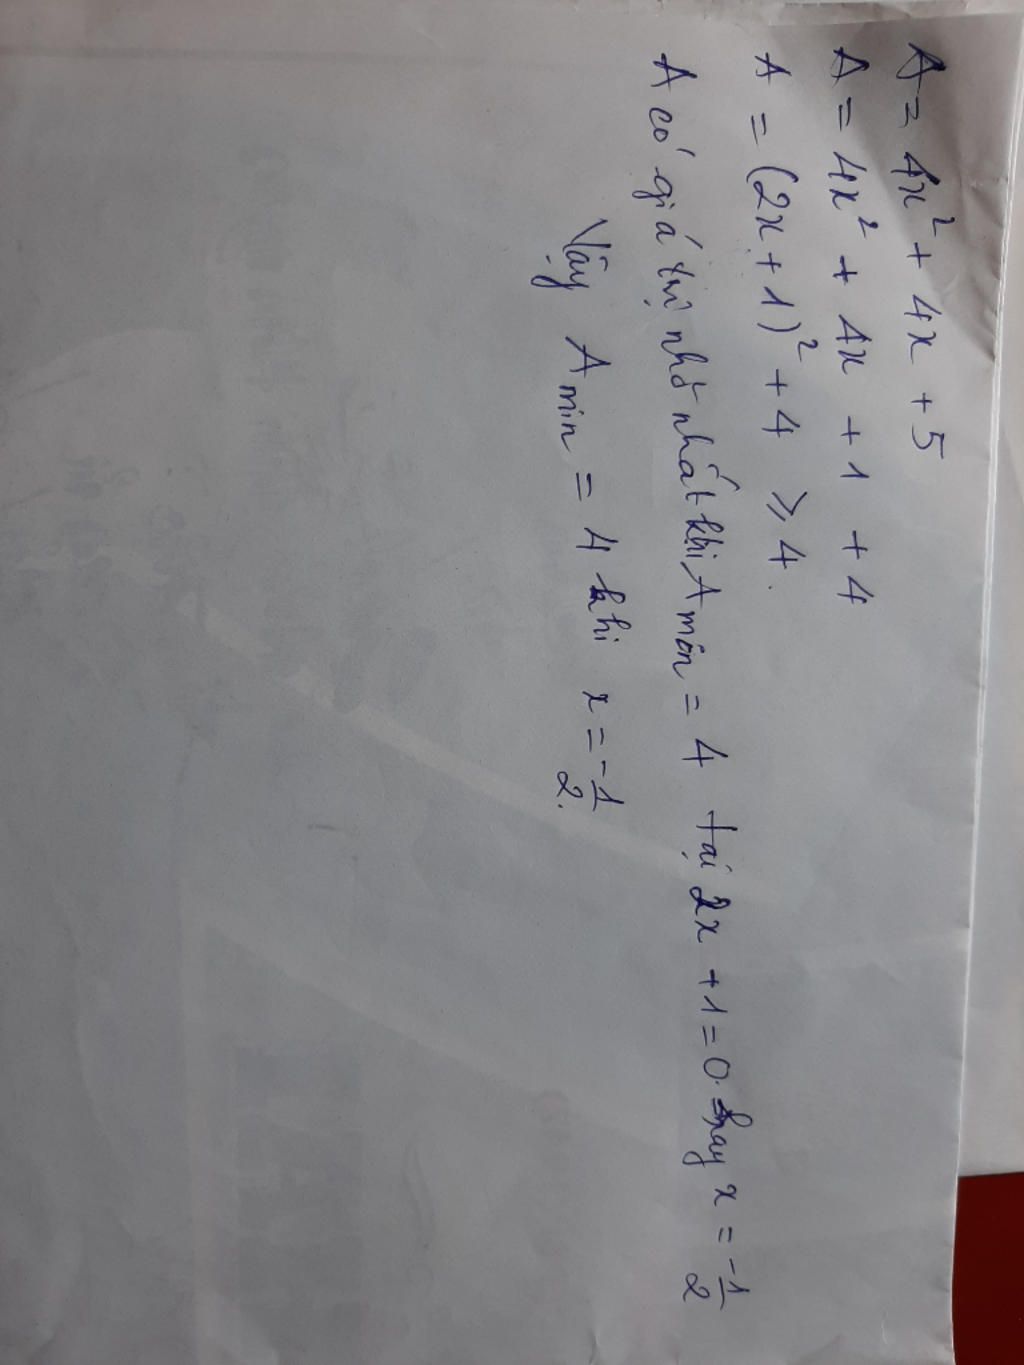 A = 4x² + 4x + 5
A = 4x² + 4x + 1 + 4
A = (2x + 1)² + 4 ⩾ 4.
A có giá trị nhỏ nhất khi A min = 4 tại 2x + 1 = 0. hay x = -1/2
Vậy A min = 4 khi x = -1/2.